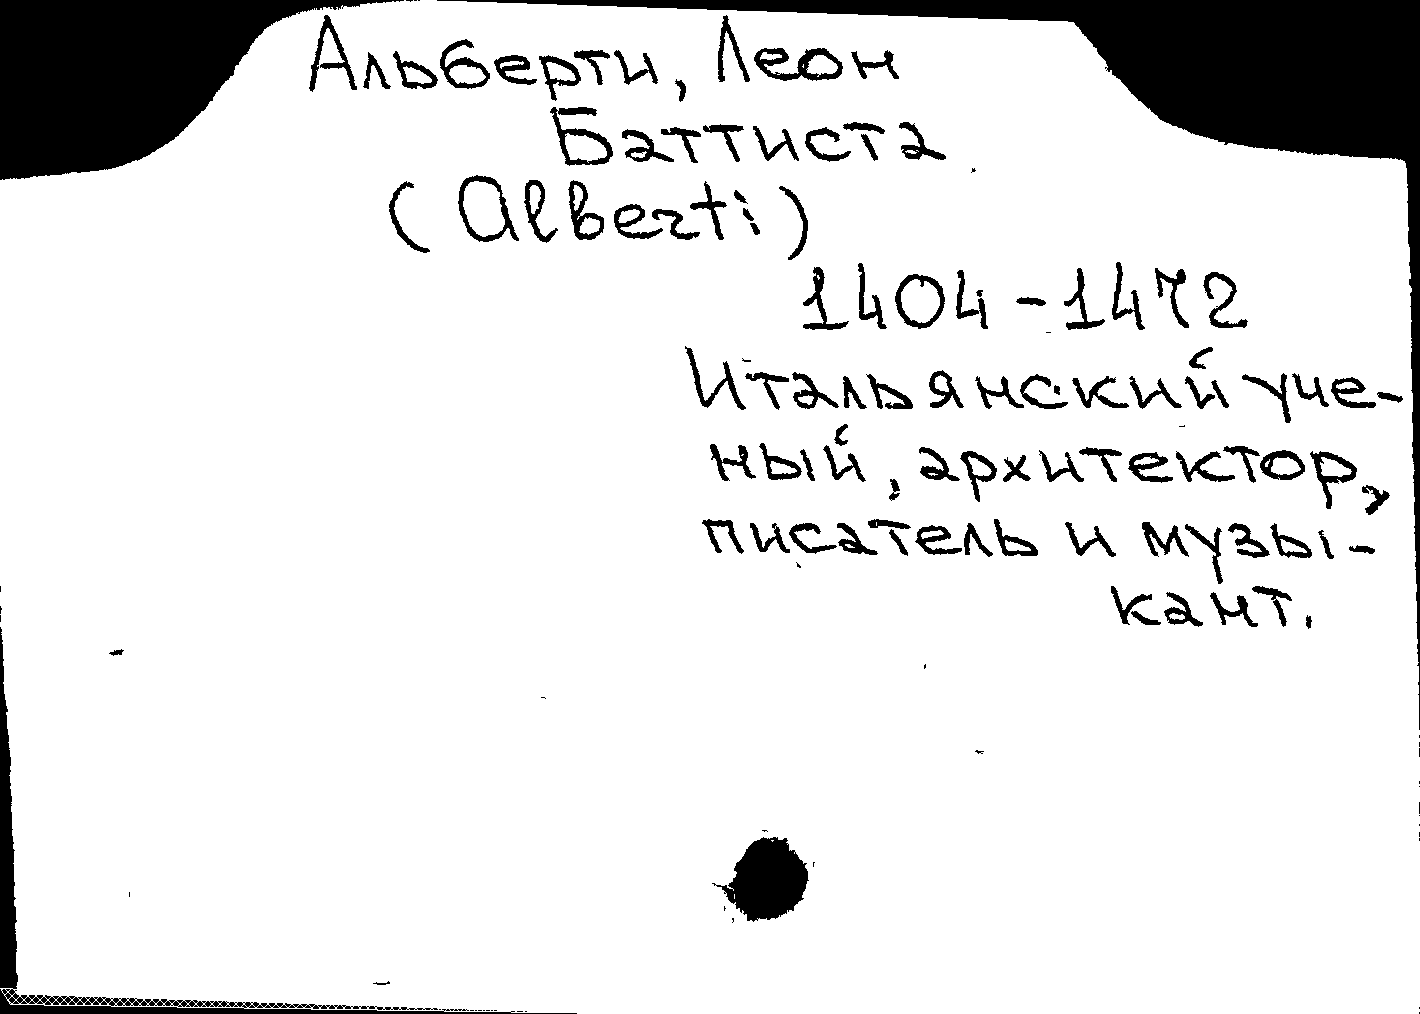 Альберти, Леон
Баттиста
(Alberti)
1404-1472
Итальянский уче-
ный, архитектор,
писатель и музы-
кант.